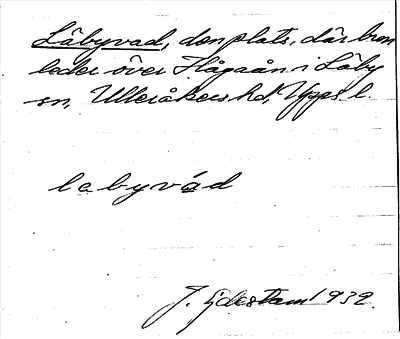 Läbyvad, den plats, där bron
leder över Hågaån i Läby
sn, Ulleråkers hd, Upps. l.
labyvád
J. Sjdestam 1932.